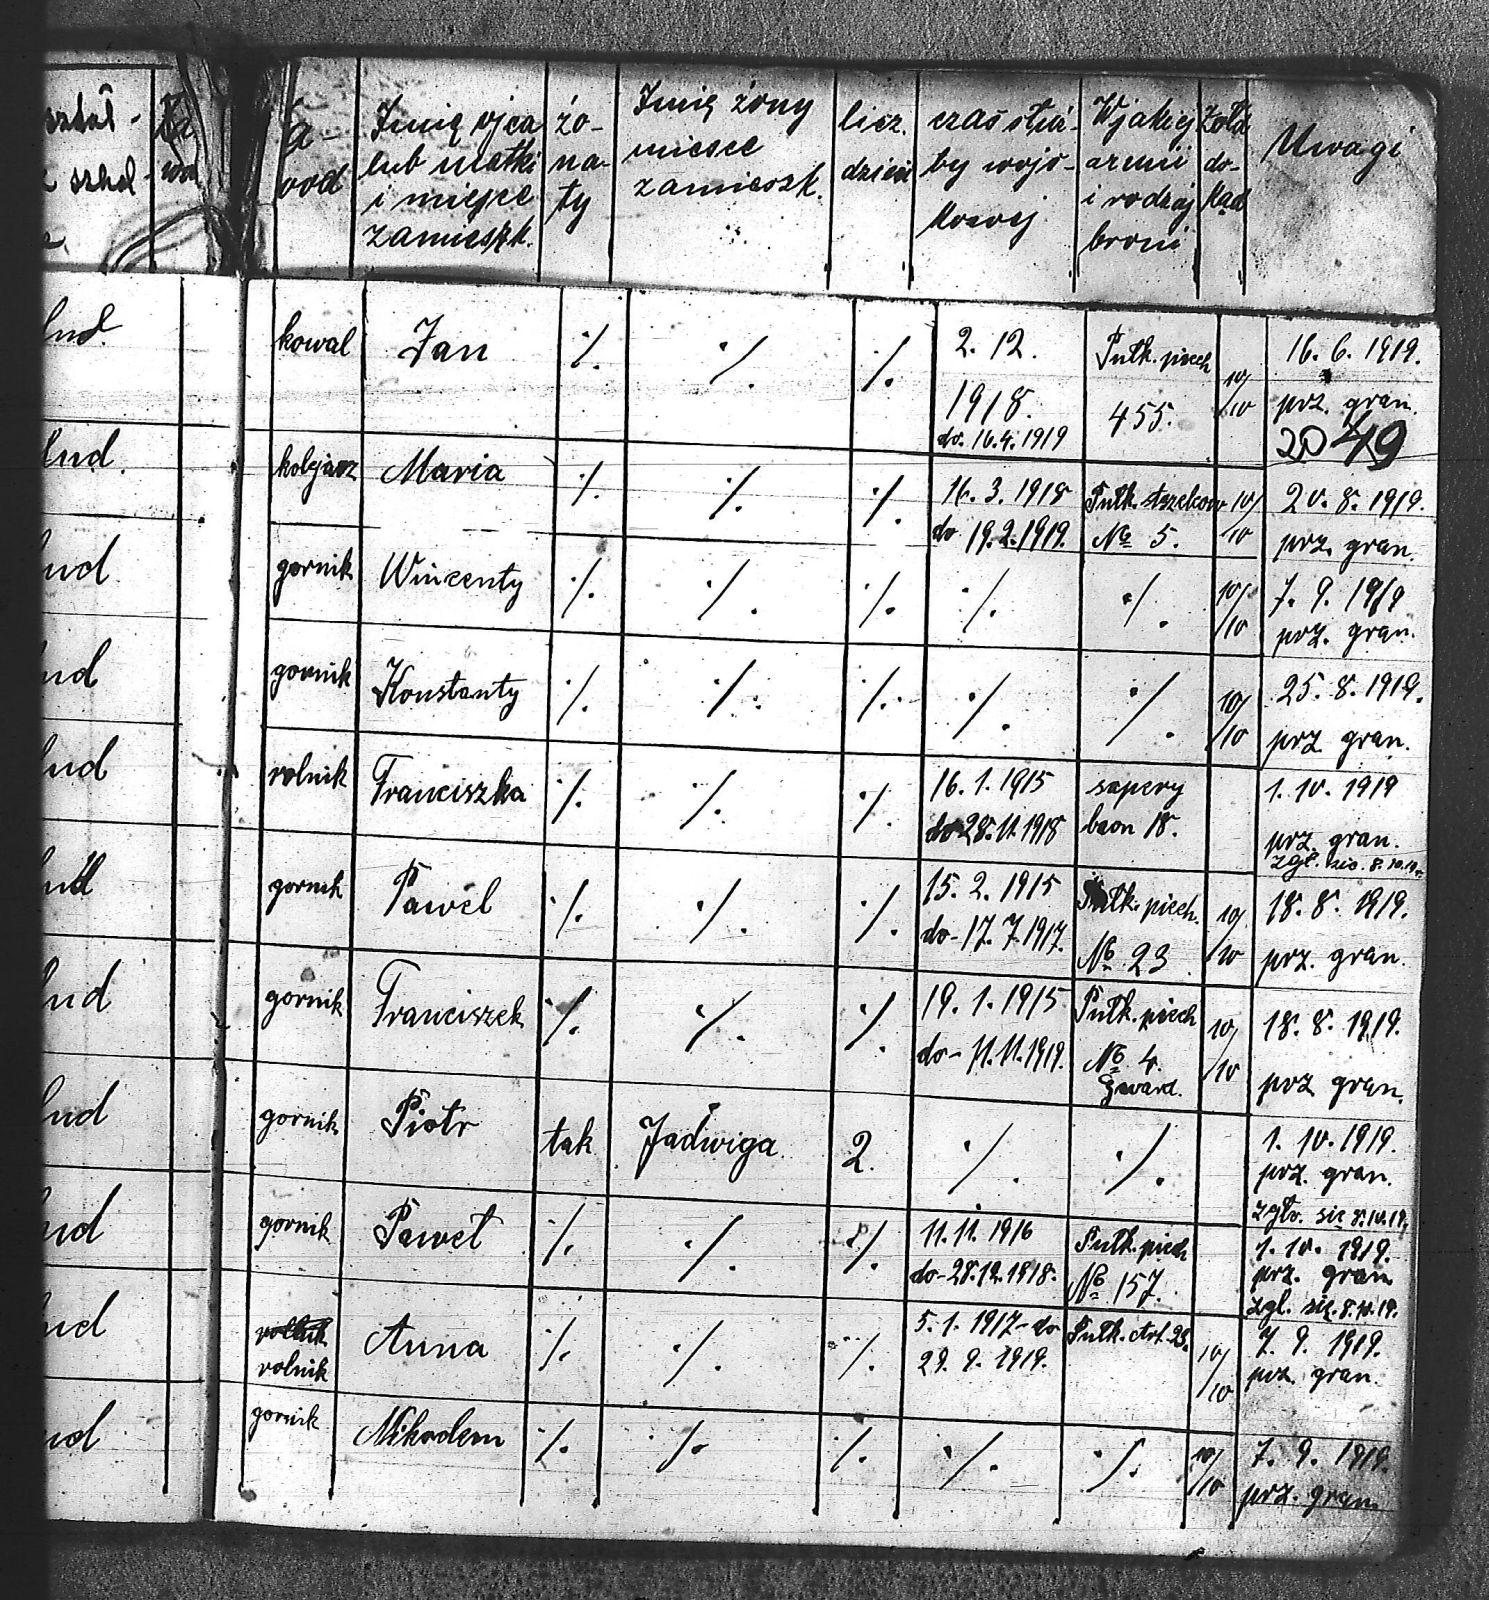 Imię ojca lub matki i miejsce zamieszk.
żo-naty
Imię żony miesce zamieszk.
licz. dzieci
czas służ-by wojs-kowej
W jakiej armii i rodzaj broni
Żołd do-kąd
Uwagi
lud. kowal Jan ·/. ·/. ·/. 2. 12. 1918. do. 16.4.1919 Pułk. piech 455. 10/10 16. 6. 1919. prz. gran.
2049
lud. kolejarz Maria ·/. ·/. ·/. 16. 3. 1918 do 19.2.1919. Pułk. strzelców № 5. 10/10 20. 8. 1919. prz. gran.
lud gornik Wincenty ·/. ·/. ·/. ·/. ·/. 10/10 7. 9. 1919 prz. gran.
lud gornik Konstanty ·/. ·/. ·/. ·/. ·/. 10/10 25. 8. 1919. prz gran.
lud rolnik Franciszka ·/. ·/. ·/. 16. 1. 1915 do 28.11.1918 sapery baon 18. 1. 10. 1919 prz. gran. zgł. sie. 8.10.19.
lud gornik Paweł ·/. ·/. ·/. 15. 2. 1915 do-17. 7. 1917. Pułk. piech. № 23 10/10 18. 8. 1919. prz. gran.
lud gornik Franciszek ·/. ·/. ·/. 19. 1. 1915 do- 11.11.1919. Pułk. piech № 4. Gward. 10/10 18. 8. 1919. prz gran.
lud gornik Piotr tak Jadwiga 2. ·/. ·/. 1. 10. 1919. prz. gran. zgło. się 8.10.19.
lud gornik Paweł ·/. ·/. ·/. 11. 11. 1916 do-28.12.1918. Pułk. piech № 157. 1. 10. 1919. prz. gran zgł. się. 8.10.19.
lud rolnik rolnik Anna ·/. ·/. ·/. 5. 1. 1917-do 29. 9. 1919. Pułk. Art. 23. 10/10 7. 9. 1919. prz. gran.
lud gornik Nikodem ·/. ·/. ·/. ·/. ·/. 10/10 7. 9. 1919. prz. gran